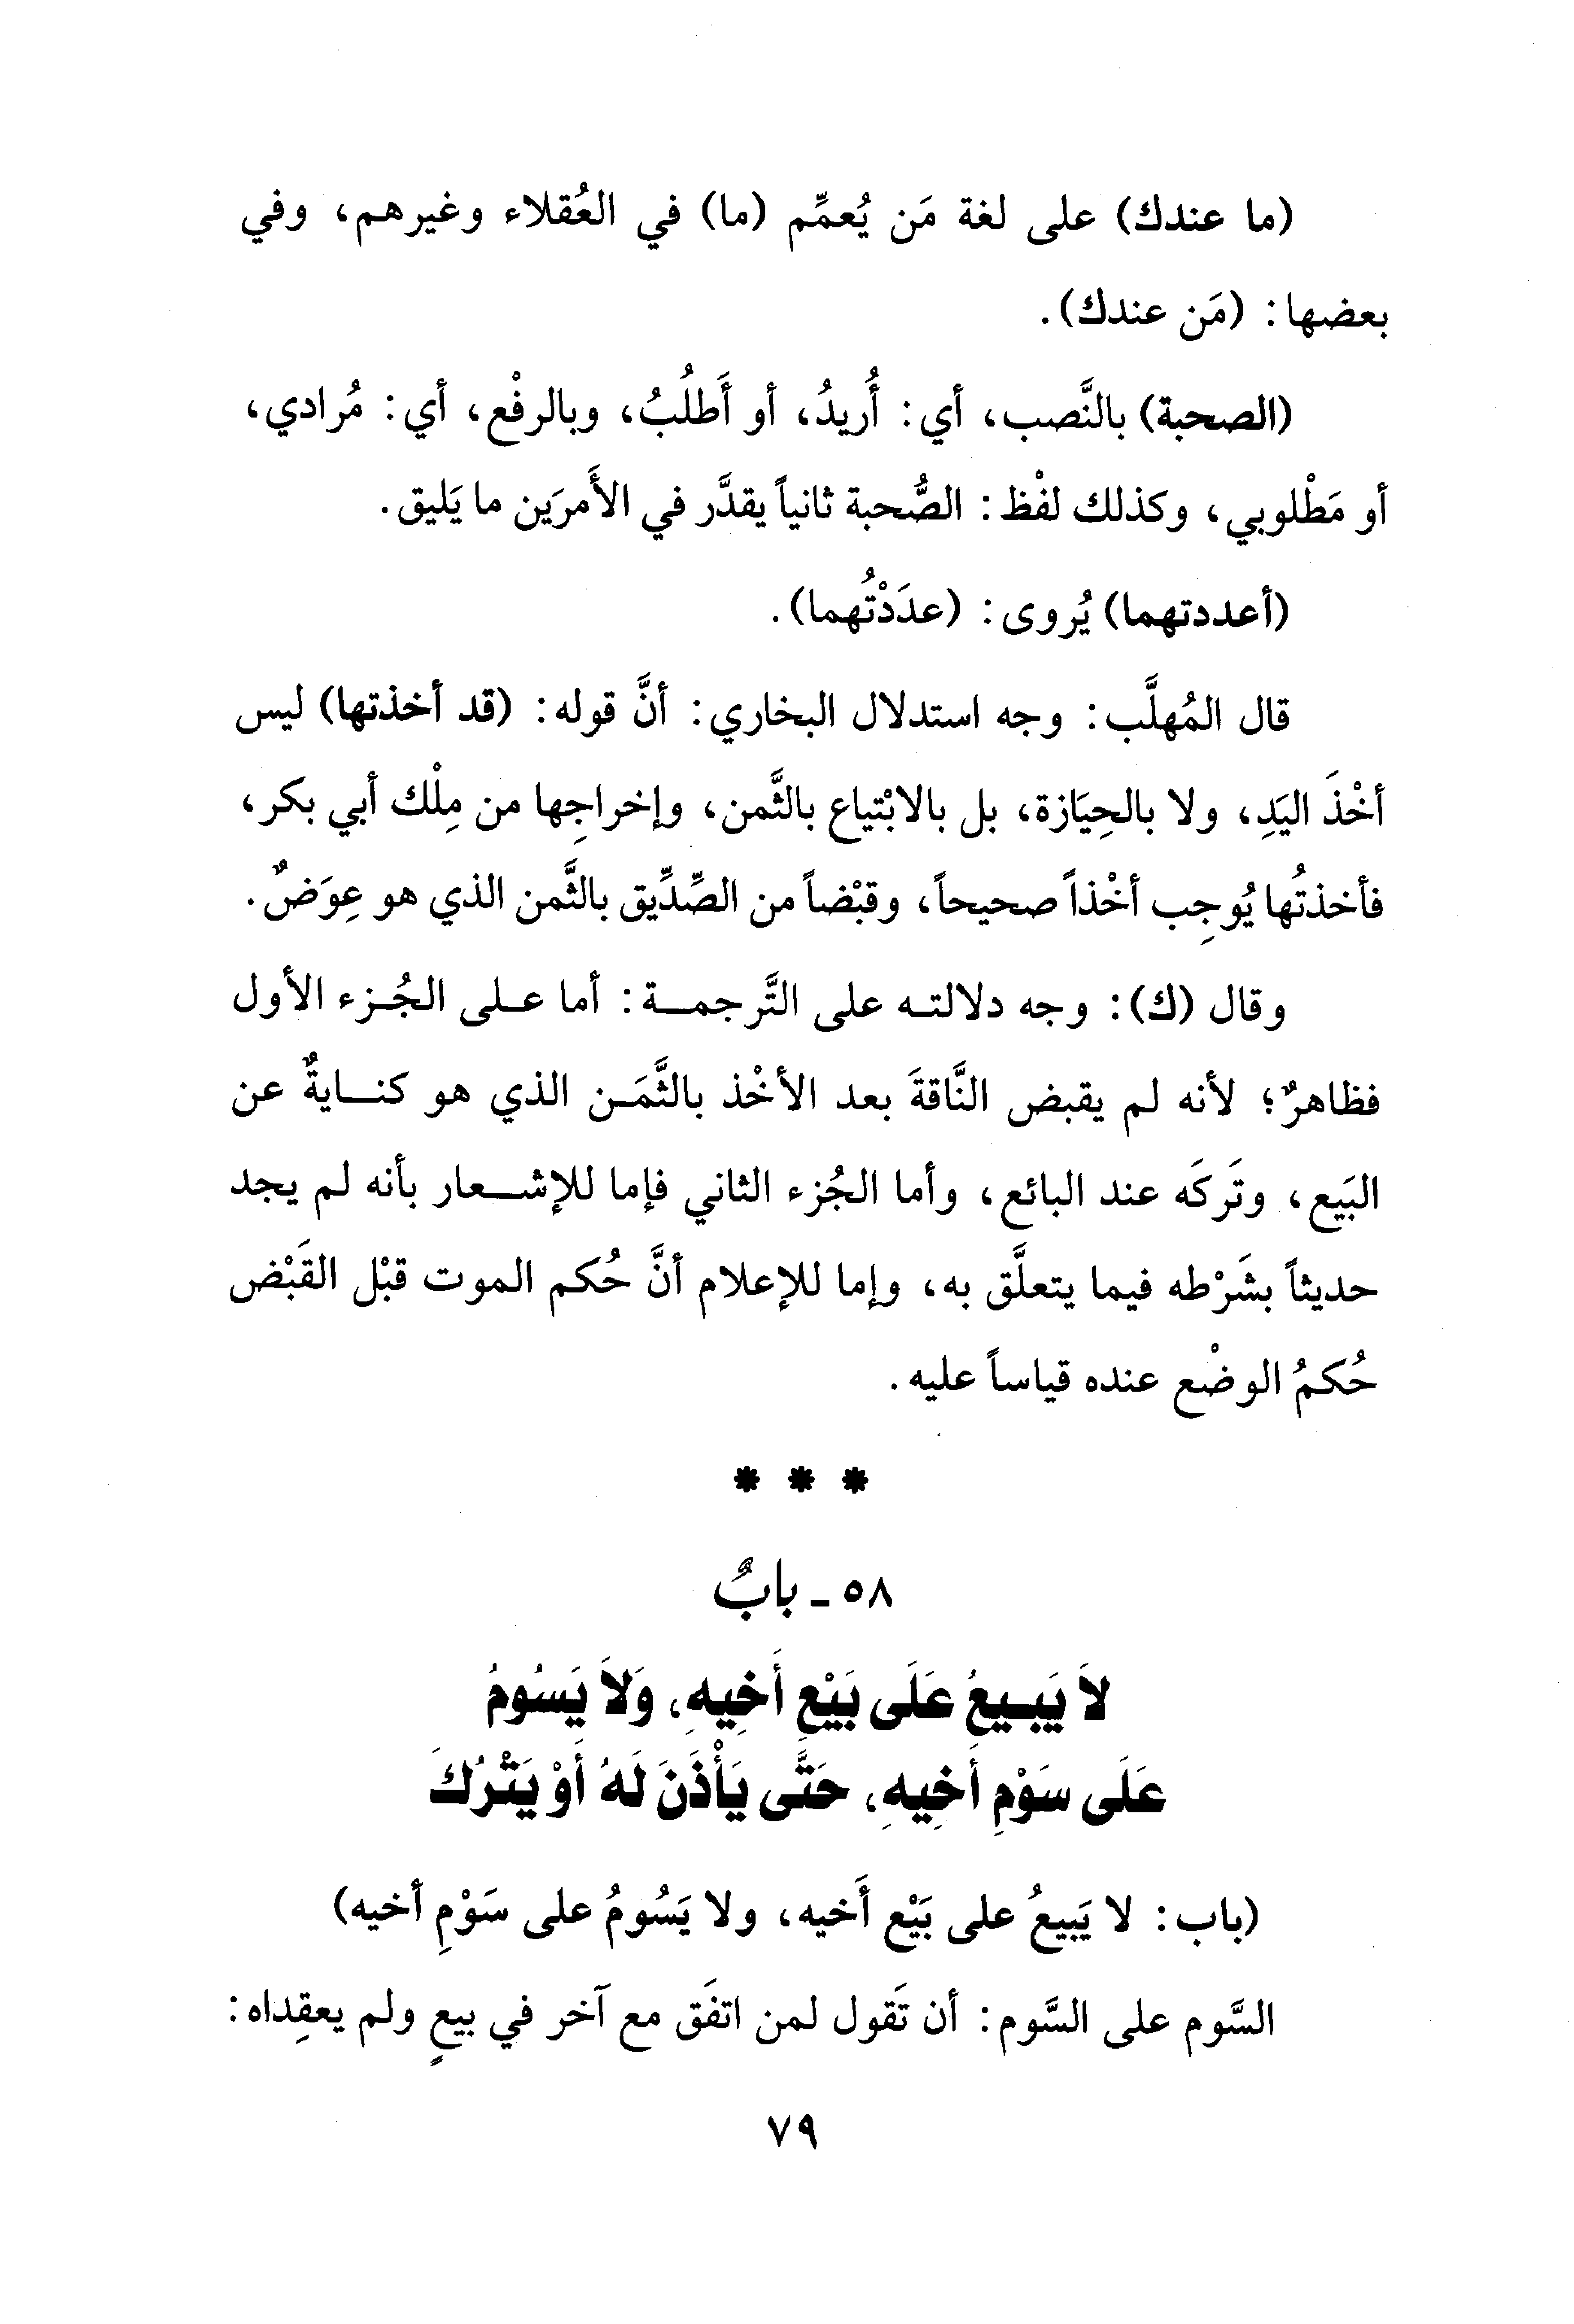 (ما عندك) على لغة مَن يُعمِّم (ما) في العُقلاء وغيرهم، وفي
بعضها: (مَن عندك).
(الصحبة) بالنَّصب، أي: أُريدُ، أو أَطلُبُ، وبالرفْع، أي: مُرادي،
أو مَطْلوبي، وكذلك لفْظ: الصُّحبة ثانياً يقدَّر في الأَمرَين ما يَليق.
(أعددتهما) يُروى: (عدَدْتُهما).
قال المُهلَّب: وجه استدلال البخاري: أنَّ قوله: (قد أخذتها) ليس
أخْذَ اليَدِ، ولا بالحِيَازة، بل بالابْتياع بالثَّمن، وإخراجِها من مِلْك أبي بكر،
فأخذتُها يُوجِب أخْذاً صحيحاً، وقبْضاً من الصِّدِّيق بالثَّمن الذي هو عِوَضٌ.
وقال (ك): وجه دلالتـه على التَّرجمــة: أما عـلى الجُـزء الأول
فظاهرٌ؛ لأنه لم يقبض النَّاقةَ بعد الأخْذ بالثَّمَـن الذي هو كنــايةٌ عن
البَيع، وتَركَه عند البائع، وأما الجُزء الثاني فإما للإشــعار بأنه لم يجد
حديثاً بشَرْطه فيما يتعلَّق به، وإما للإعلام أنَّ حُكم الموت قبْل القَبْض
حُكمُ الوضْع عنده قياساً عليه.
* * *
٥٨ - بابٌ
لاَ يَبـيعُ عَلَى بَيْعِ أَخِيهِ، وَلاَ يَسُومُ
عَلَى سَوْمِ أَخِيهِ، حَتَّى يَأْذَنَ لَهُ أَوْ يَتْرُكَ
(باب: لا يَبيعُ على بَيْع أَخيه، ولا يَسُومُ على سَوْمِ أخيه)
السَّوم على السَّوم: أن تَقول لمن اتفَق مع آخر في بيعٍ ولم يعقِداه:
٧٩